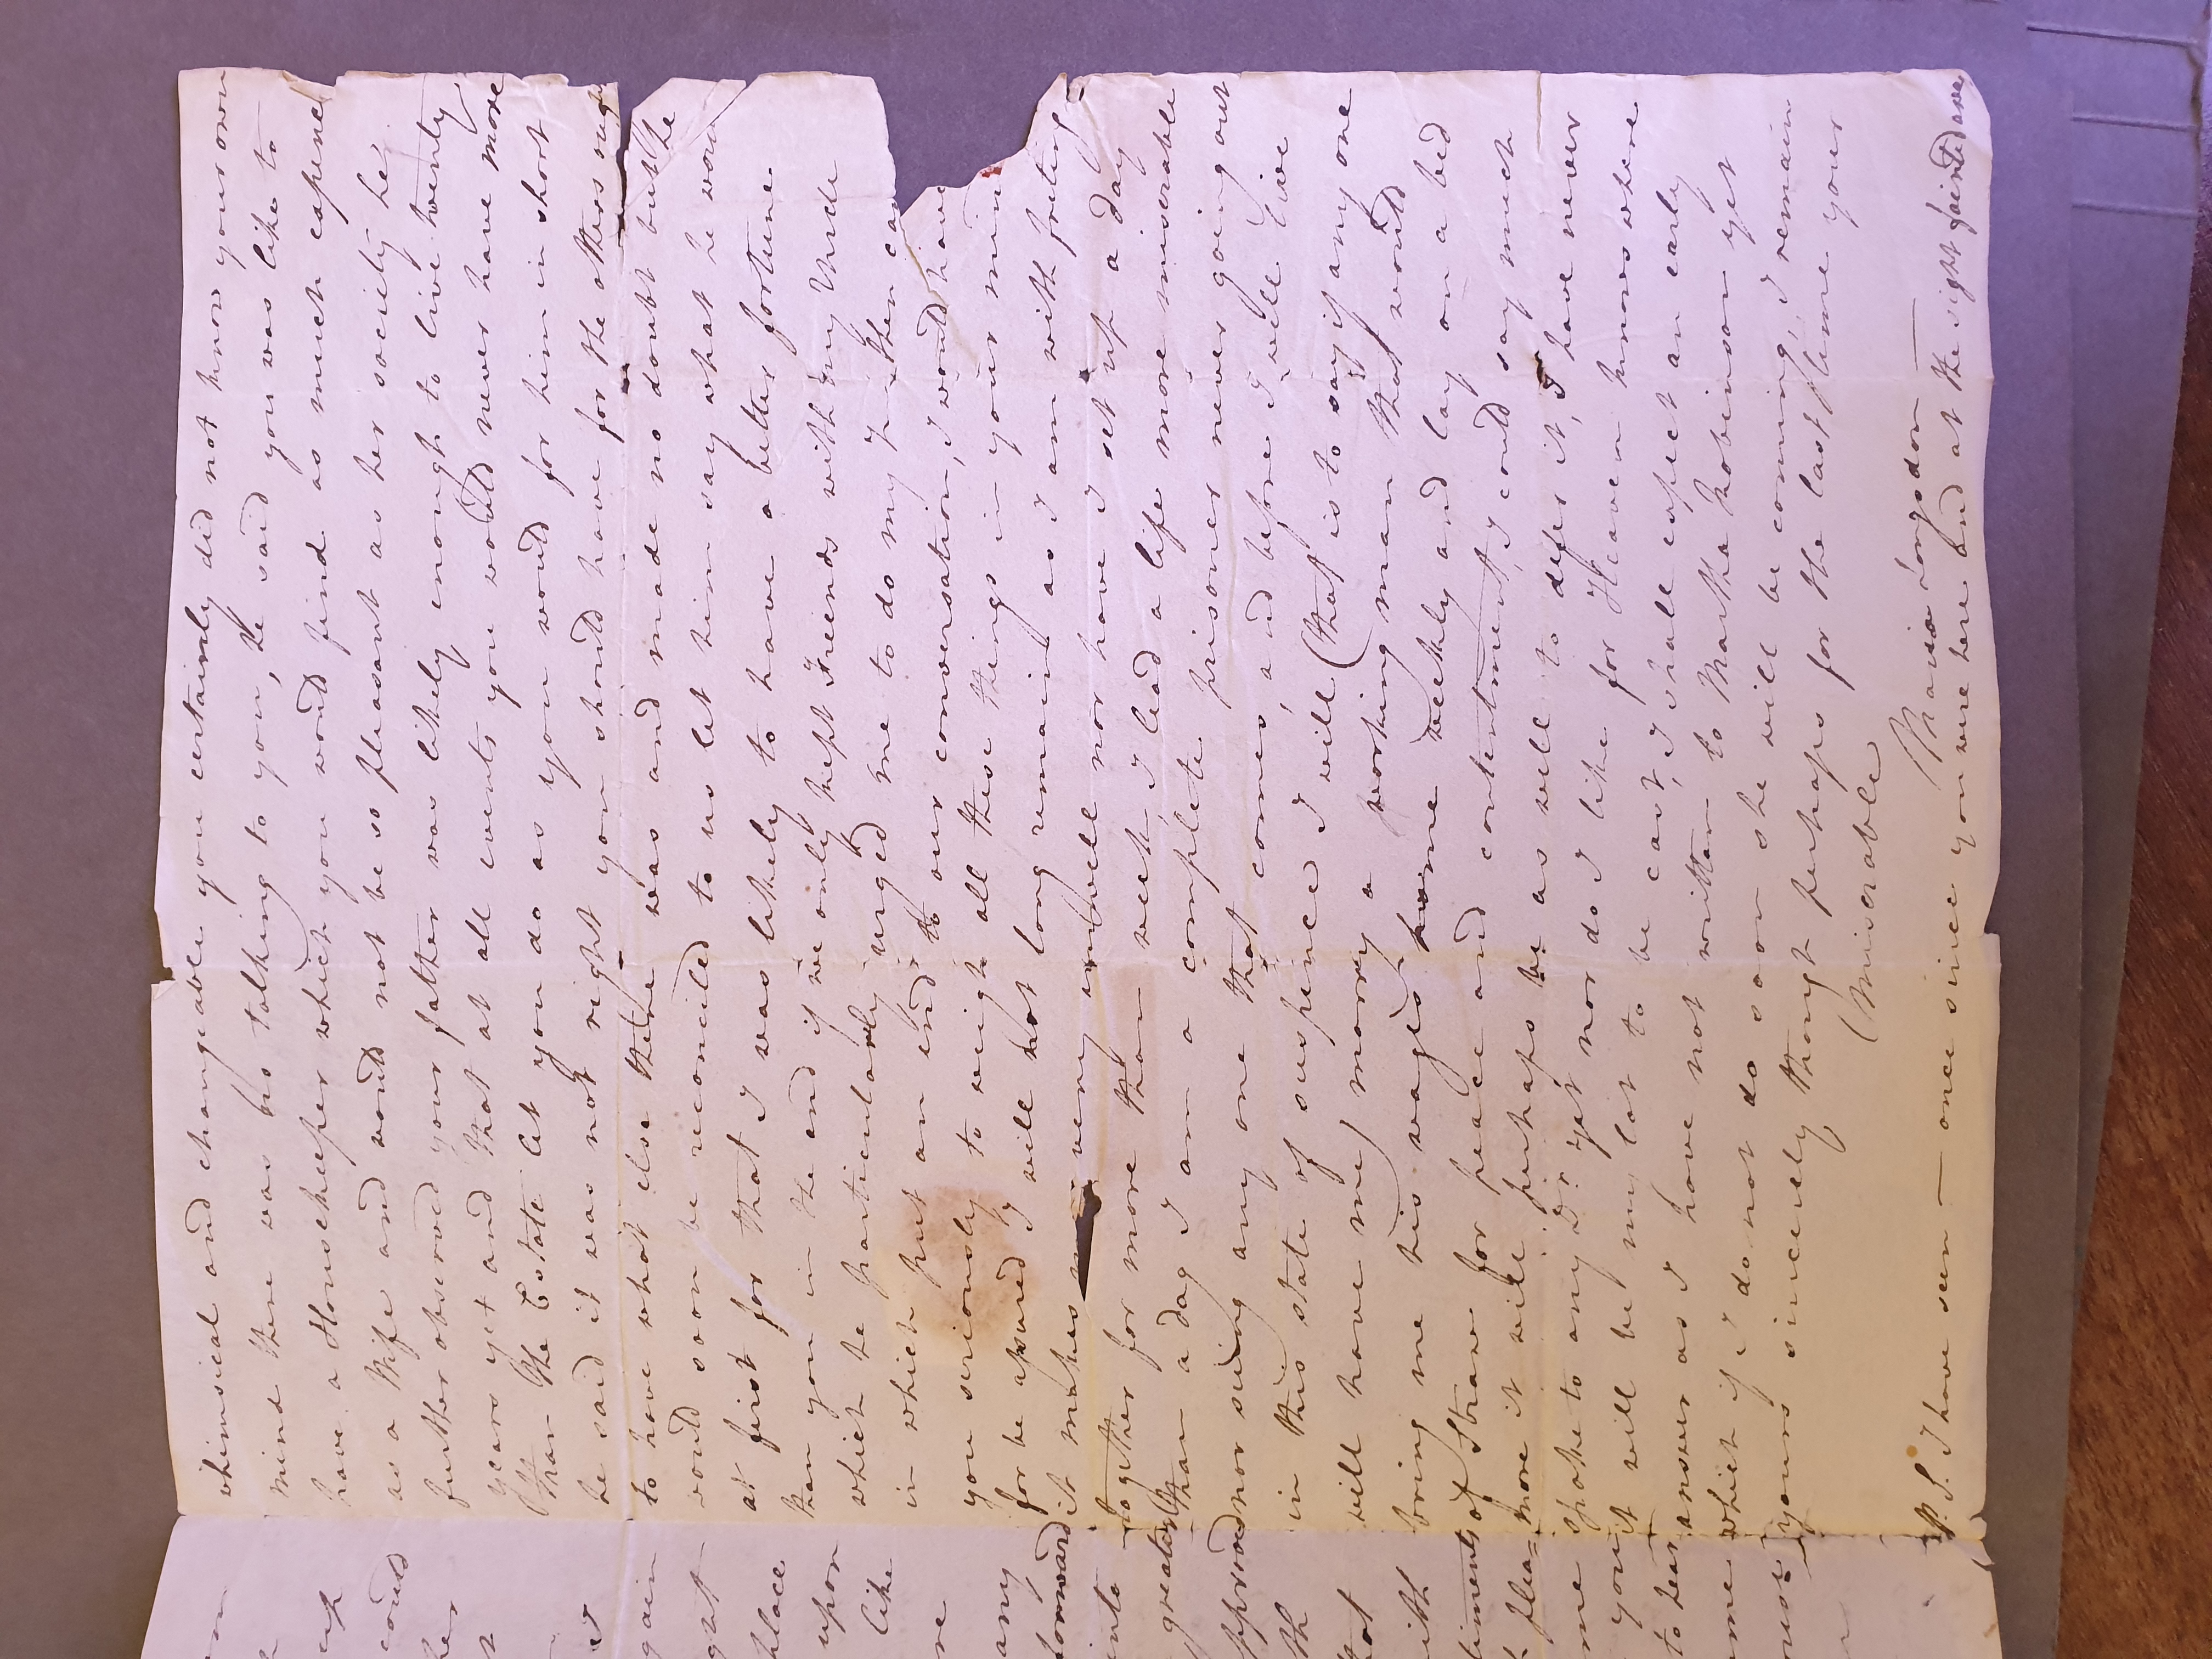 whimsical and changeable you certainly did not know your own
mind there was no talking to you, he said you was like to
have a Housekeeper which you would find as much expence
as a Wife and would not be so pleasant as her society he
further observed your father was likely enough to live twenty
years yet and that at all events you would never have more
than the Estate let you do as you would for him in short
he said it was not right you should have for the others
to have what else there was and made no doubt but the
would soon be reconciled to us let him say what he wou
at first for that I was likely to have a better fortune
than you in the end if we only kept Freinds with my Uncle
which he particularly urged me to do my then
in which put an end to our conversation, I would have
you seriously to weigh all these things in your min
for be assured I will not long remain as I am with freting
it makes me very unwell nor have I set up a day
together for more than week, I lead a life more miserable
than a day I am a complete prisoner never going out
nor seing any one that comes, and before I will live
in this state of suspence I will (that is to say if any one
will have me) marry a working man that would
bring me his wages home weekly and lay on a bed
of Straw for peace and contentment, I could say much
more it will perhaps be as well to defer it, I have never
spoke to any Dr. yet nor do I like for Heaven knows where
it will be my lot to be cast, I shall expect an early
answer as I have not written to Martha Robinson yet
which if I do not do soon she will be coming, I remain
yours sincerely though perhaps for the last time your
(Miserable)
Maria Longsdon
P.S. I have seen — once since you were here and at the sight fainted
m
could
her
I
gain
place
upon
like
any
forward
into
greater
approved
th
that
with
liments
plea=
me
you
to hear
me